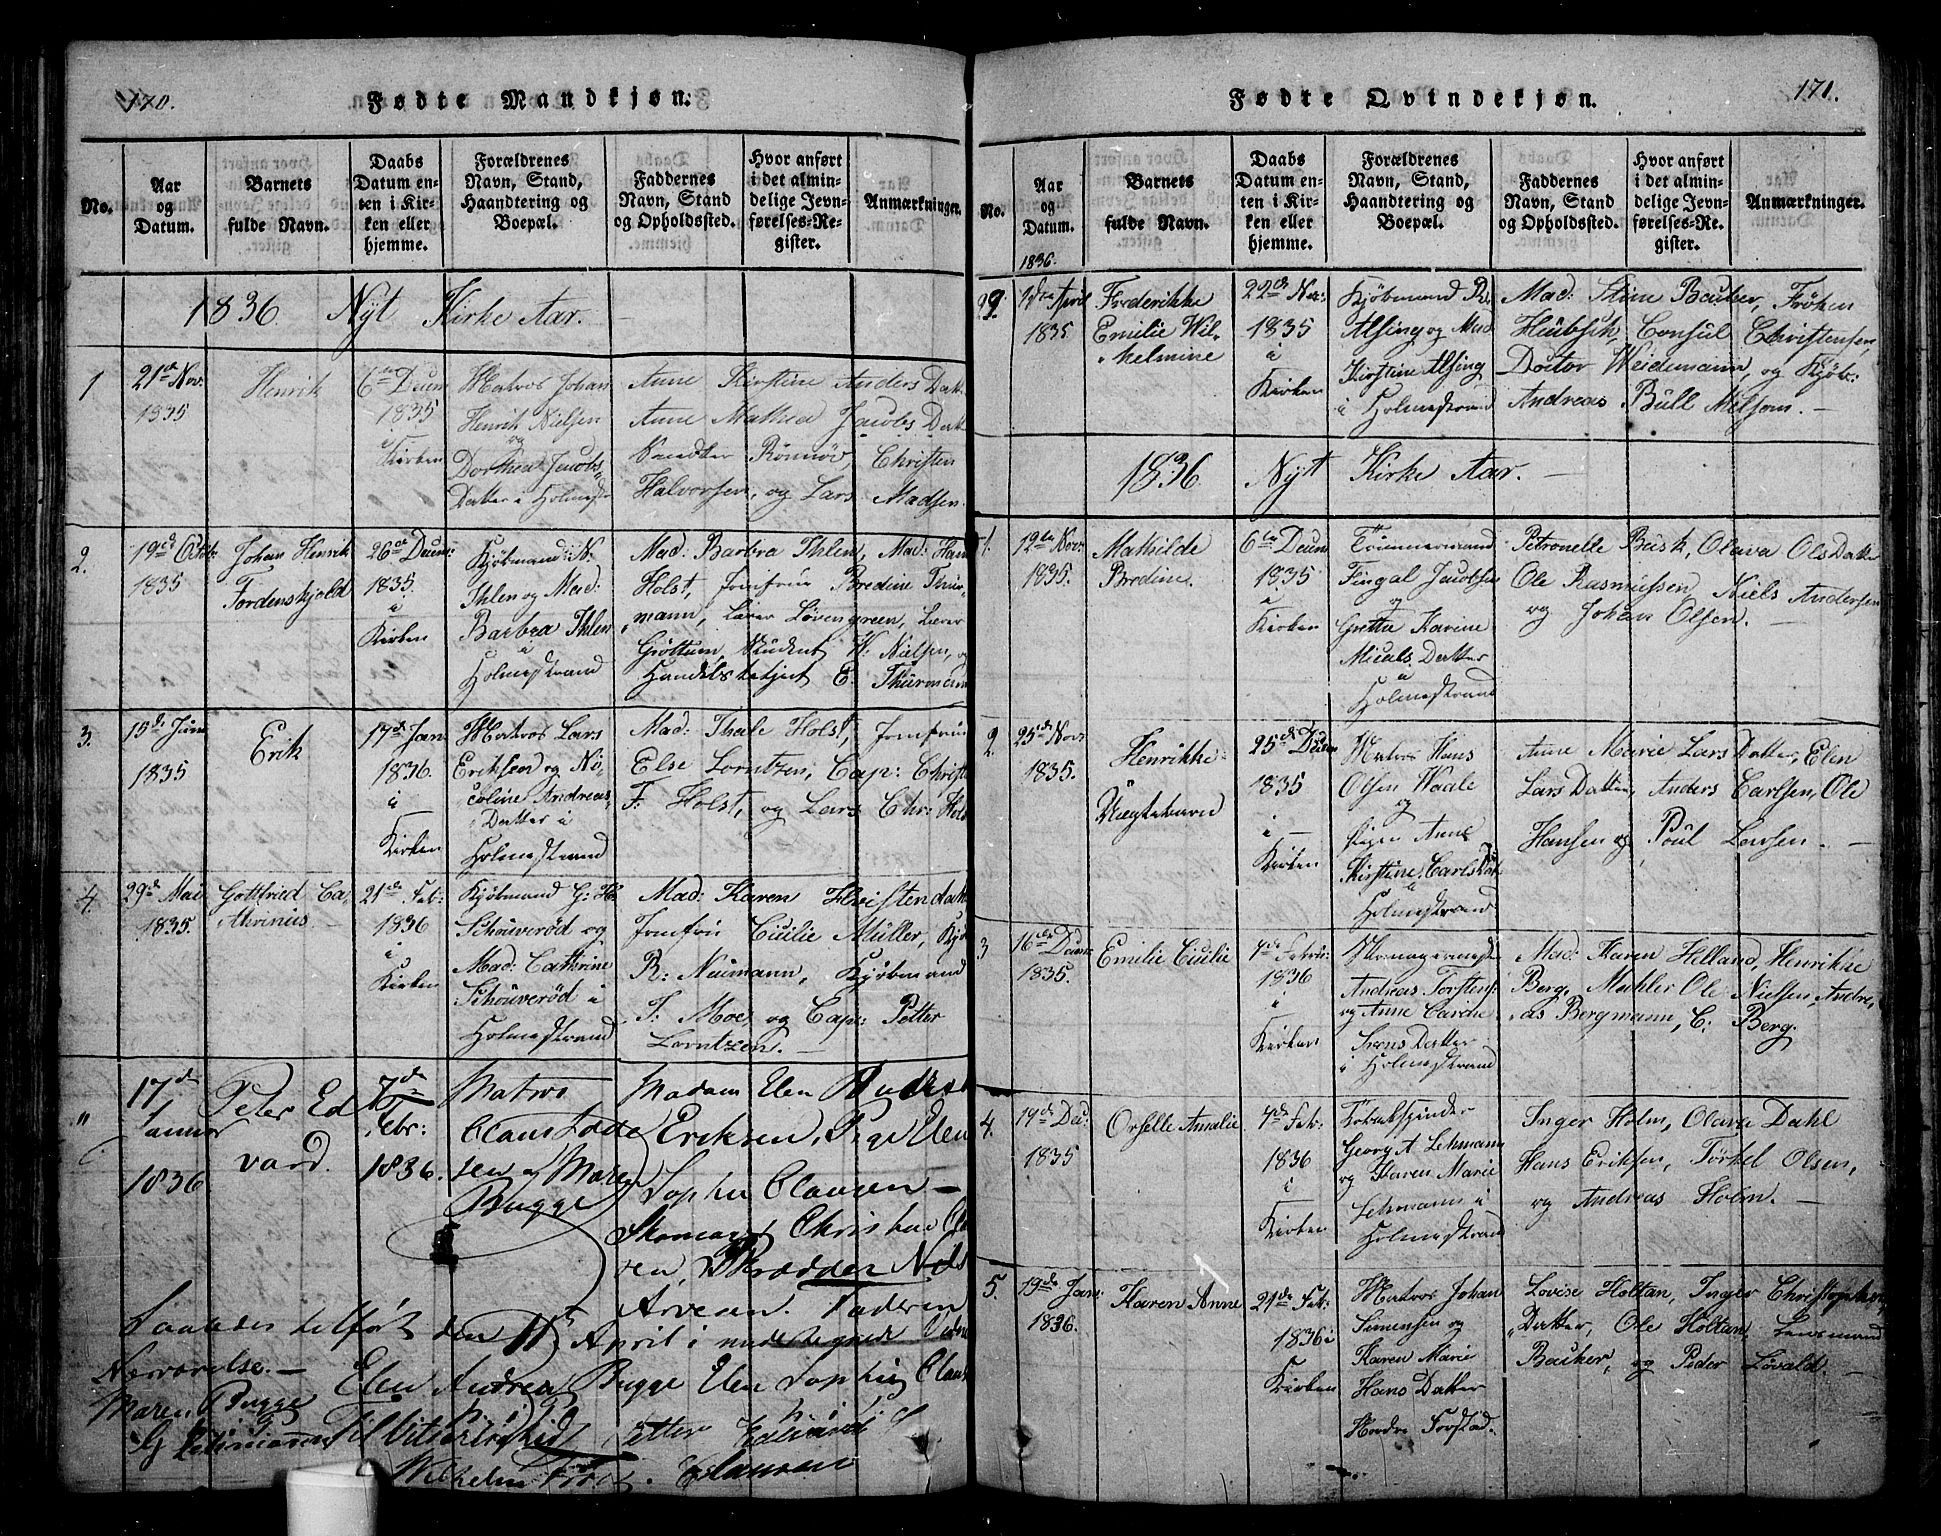 170.
Fødte Mandkjøn.
No.
Aar
og
Datum.
Barnets
fulde Navn.
Daabs
Datum en-
ten i Kir-
ken eller
hjemme.
Forældrenes
Navn, Stand,
Haandtering og
Boepæl.
Faddernes
Navn, Stand
og Opholdssted.
Hvor anført
i det almin-
delige Jevn-
førelses-Re-
gister.
Anmærkninger.
1836. Nyt Kirke Aar.
1
21de Nov:
1835
Henrik
6te Decem
1835
i
Kirken
Matros Johan
Henrik Nielsen
og
Dorthea Jacobs
Datter i Holmestr
Anne Kirstine Anders Datt
Anne Mathea Jacobs Datt
Rønnov, Christen
Halvorsen, og Lars Madsen.
2.
19de Octob:
1835
Johan Henrik
Tordenskjold
26de Decem:
1835.
i
Kirken
Kjøbmand N.
Ihlen og Mad:
Barbra Ihlen
i
Holmestrand
Mad: Barbra Ihlen, Mad: Han
Holst, Jomfrue Bredine Thur
mann, Lærer Løvengreen, Lærer
Grøttum, Student W: Nielsen, og
Handelsbetjent E. Thurmann
3.
15de Juni
1835
Erik
17de Jan
1836.
i
Kirken
Matros Lars
Eriksen og Ni-
coline Andreas
Datter i
Holmestrand
Mad: Thale Holst, Jomfrue
Else Lorntzen, Cap: Christ
F. Holst, og Lars Chr: Hols
4.
29de Mai
1835.
Gottfried Ca
thrinus
21de Feb:
1836
i
Kirken
Kjøbmand G: H:
Schouverød og
Mad: Cathrine
Schouverød i
Holmestrand
Mad: Karen Christendatt
Jomfru Cicilie Müller, Kjøb
B: Naumann, Kjøbmand
T. Moe, og Cap: Petter
Lorntzen.
"
17de
Januar
1836
Peter Ed
vard.
7de
Febr:
1836.
Matros
Claus
sen og Maren
Bugge
Madam Elen
Eriksen, Pige Elen
Sophie Clausen
Skomager Christian Cla
sen, Skrædder Niels
Arvesen. Faderen
Saaledes tilført den 11te April i undertegnede
Nærværelse.
Maren Bugge Elen Andrea Bugge Elen Sophie Claus
Til Vitterlighed
Petter Edvard
Wilhelm Clausen
171.
Fødte Qvindekjøn.
No.
Aar
og
Datum.
Barnets
fulde Navn.
Daabs
Datum en-
ten i Kir-
ken eller
hjemme.
Forældrenes
Navn, Stand,
Haandtering og
Boepæl.
Faddernes
Navn, Stand
og Opholdssted.
Hvor anført
i det almin-
delige Jevn-
førelses-Re-
gister.
Anmærkninger.
1836.
29.
1ste April
1835
Frederikke
Emilie Wil-
helmine
22de Nov:
1835
i
Kirken
Kjøbmand R.
Alsing og Mad
Kirstine Alsing
i Holmestrand
Mad: Stine Backer, Frøken
Heubsch, Consul Christensen,
Doctor Weidemann, og Kjøb:
Andreas Bull Melsom.
1836 Nyt Kirke Aar.
1.
12te Nov:
1835.
Mathilde
Bredine.
6te Decem
1835
i
Kirken
Tømmermand
Fingal Jacobsen
og
Grethe Karine
Micals Datter
i
Holmestrand
Petronelle Busk, Olava OlsDatter
Ole Rasmussen, Niels Andersen
og Johan Olsen.
2.
25de Nov:
1835.
Henrikke
Uægtebarn
25de Decem
1835
i
Kirken
Matros Hans
Olsen Waale
og
Pigen Anne
Kirstine CarlsDat
i
Holmestrand
Anne Marie LarsDatter, Elen
LarsDatter, Anders Carlsen, Ole
Hansen og Poul Larsen.
3
16de Decem
1835.
Emilie Cicilie
7de Febru:
1836
i
Kirken
Skomagermester
Andreas Torstens
og Anne Carthe
Svens Datter
i Holmestrand
Mad: Karen Helland, Henrikke
Berg, Mahler Ole Nielsen Andre-
as Bergmann, C. Berg.
4.
19de Dec:
1835
Orselle Amalie
7de Feb:
1836
i
Kirken
Tobakspinder
Georg A Lehmann
og Karen Marie
Lehmann i
Holmestrand
Inger Holm, Olava Dahl
Hans Eriksen, Torkel Olsen,
og Andreas Holm.
5.
19de Jan:
1836.
Karen Anne
21de Feb:
1836 i
Kirken
Matros Johan
Simensen og
Karen Marie
Hans Datter
Nordre Forstad.
Lovise Holtan, Inger Christophers
Datter, Ole Holtan, Lensmand
Backer, og Peder Løvald.